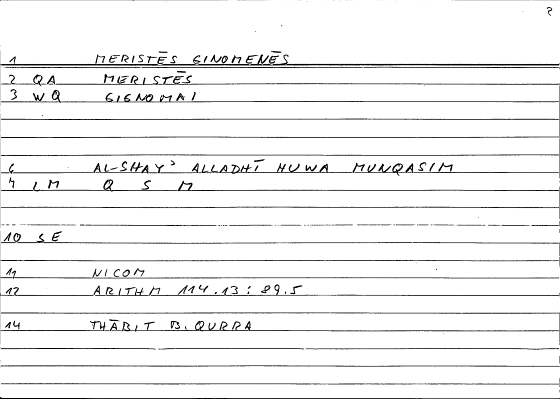 ?
1 MERISTĒS GINOMENĒS
2 QA MERISTĒS
3 WQ GIGNOMAI
6 AL-SHAYʾ ALLADHĪ HUWA MUNQASIM
7 LM Q S M
10 SE
11 NICOM
12 ARITHM 114.13 : 89.5
14 THĀBIT B. QURRA